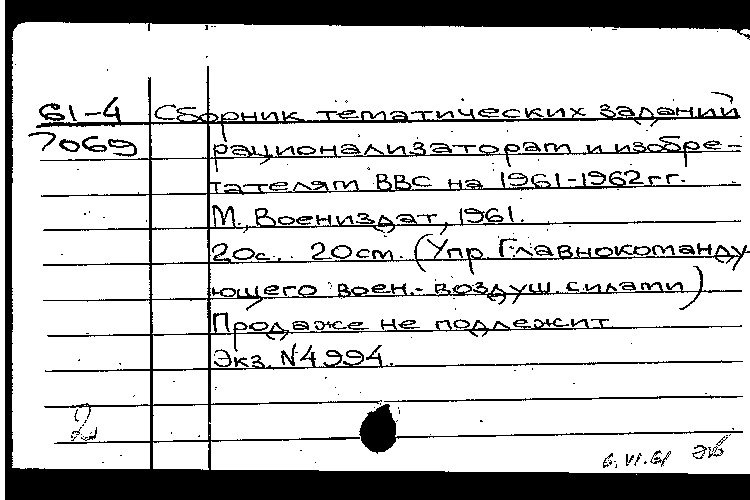 61-4 Сборник тематических заданий
7069 рационализаторам и изобре-
тателям ВВС на 1961-1962 гг.
М., Воениздат, 1961.
20с. 20см. (Упр. Главнокоманду
ющего воен.- воздуш. силами)
Продаже не подлежит
Экз. N4994.
2
6.VI.61